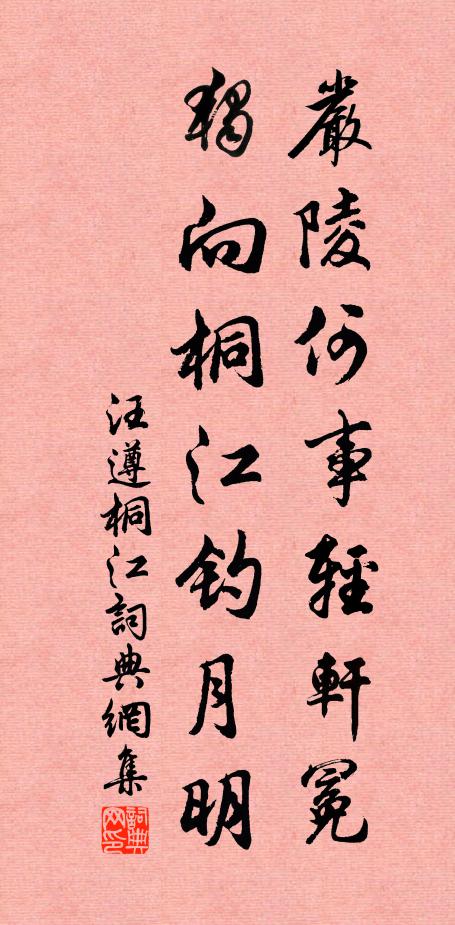 嚴陵何事輕軒冕
獨向桐江釣月明
汪遵桐江詞典網集
詞典网印